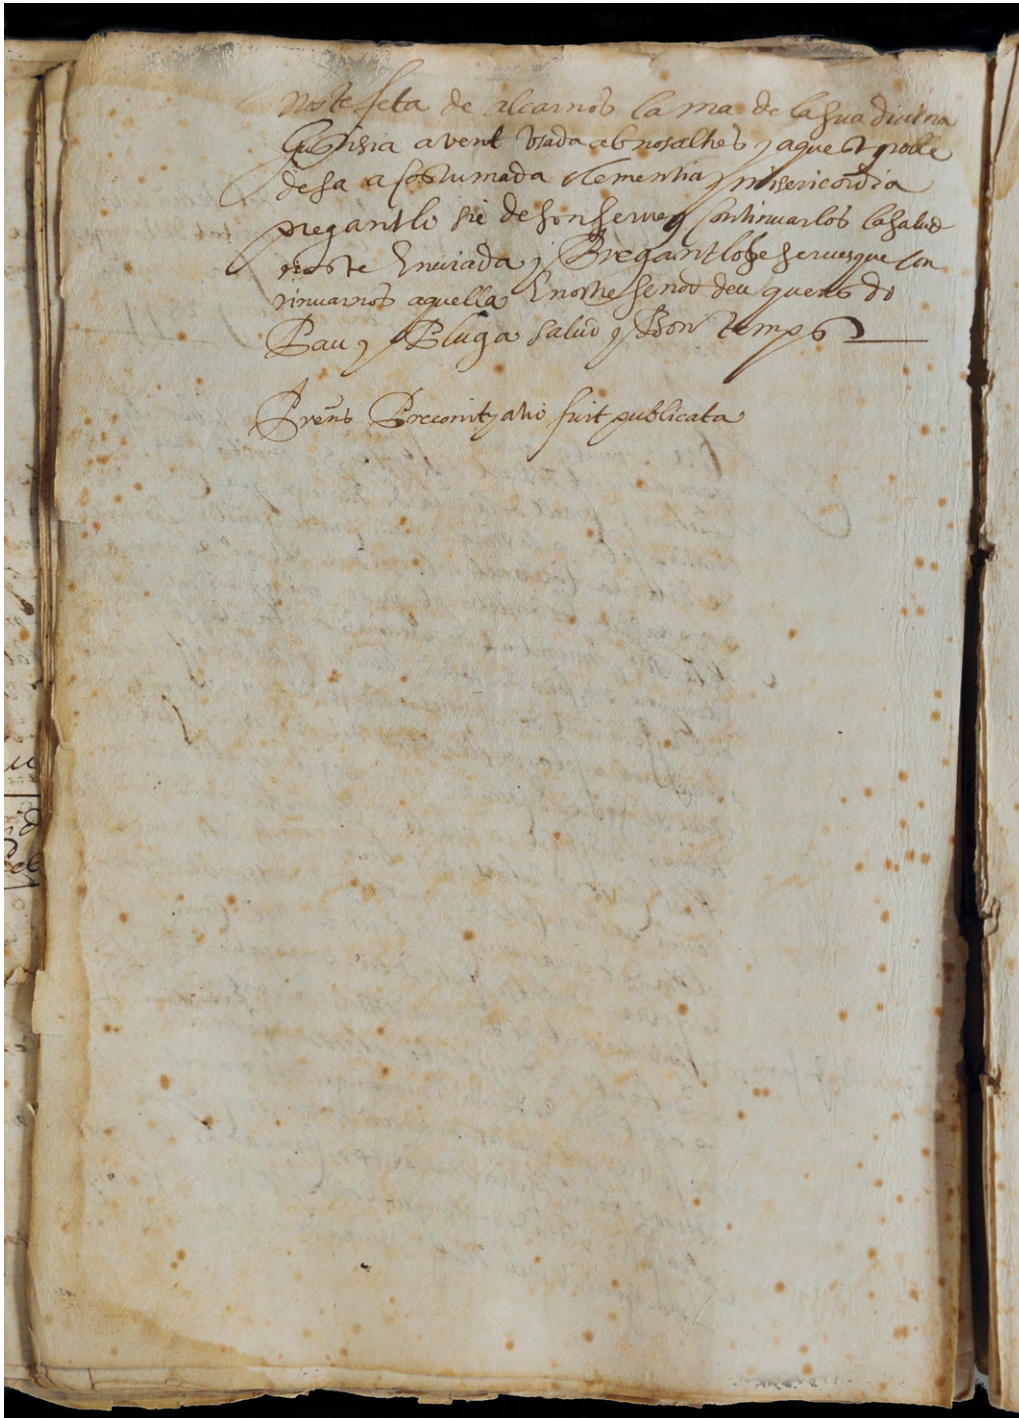 feta de alcarnos la ma de la sua divina
Justisia avent Usada ab nosaltres y a quest poble
de sa acostumada clementia y misericordia
pregantlo sie de son servey continuarlos la salud
Enviada y Pregantlo se servesque con
tinuarnos aquella E nostre senor deu quens do
Pau y Pluga salud y Bon temps
Prens Preconitzatio fuit publicata